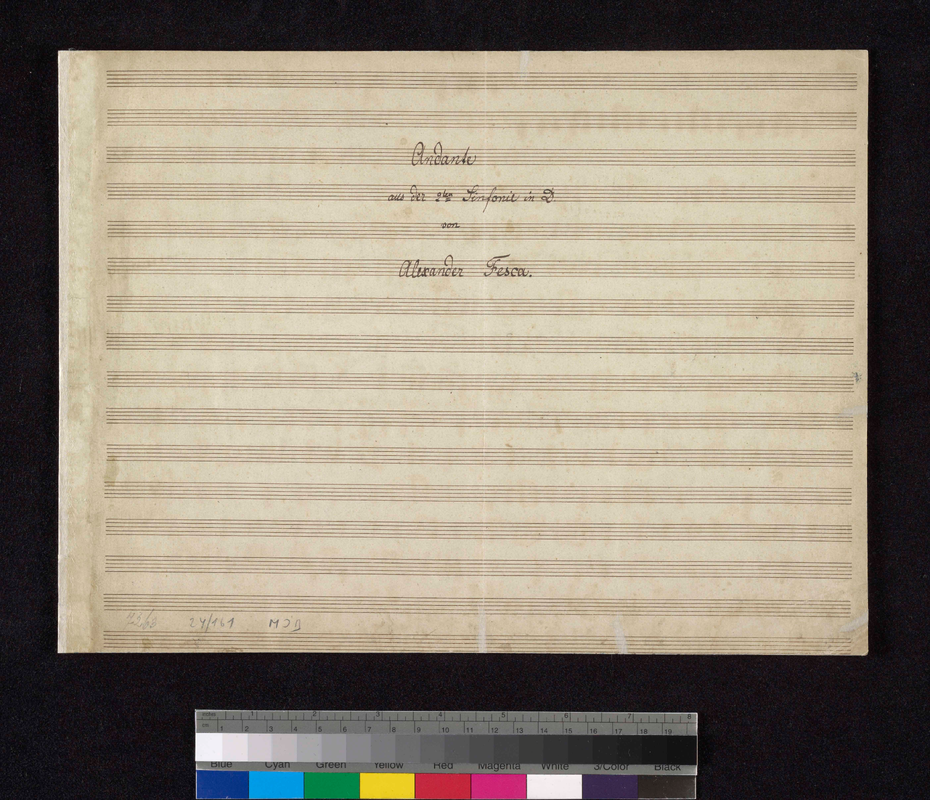 Andante
aus der 2ten Sinfonie in D
von
Alexander Fesca.
24/141 MJB
inches 1 2 3 4 5 6 7 8
cm 1 2 3 4 5 6 7 8 9 10 11 12 13 14 15 16 17 18 19
Blue Cyan Green Yellow Red Magenta White 3/Color Black